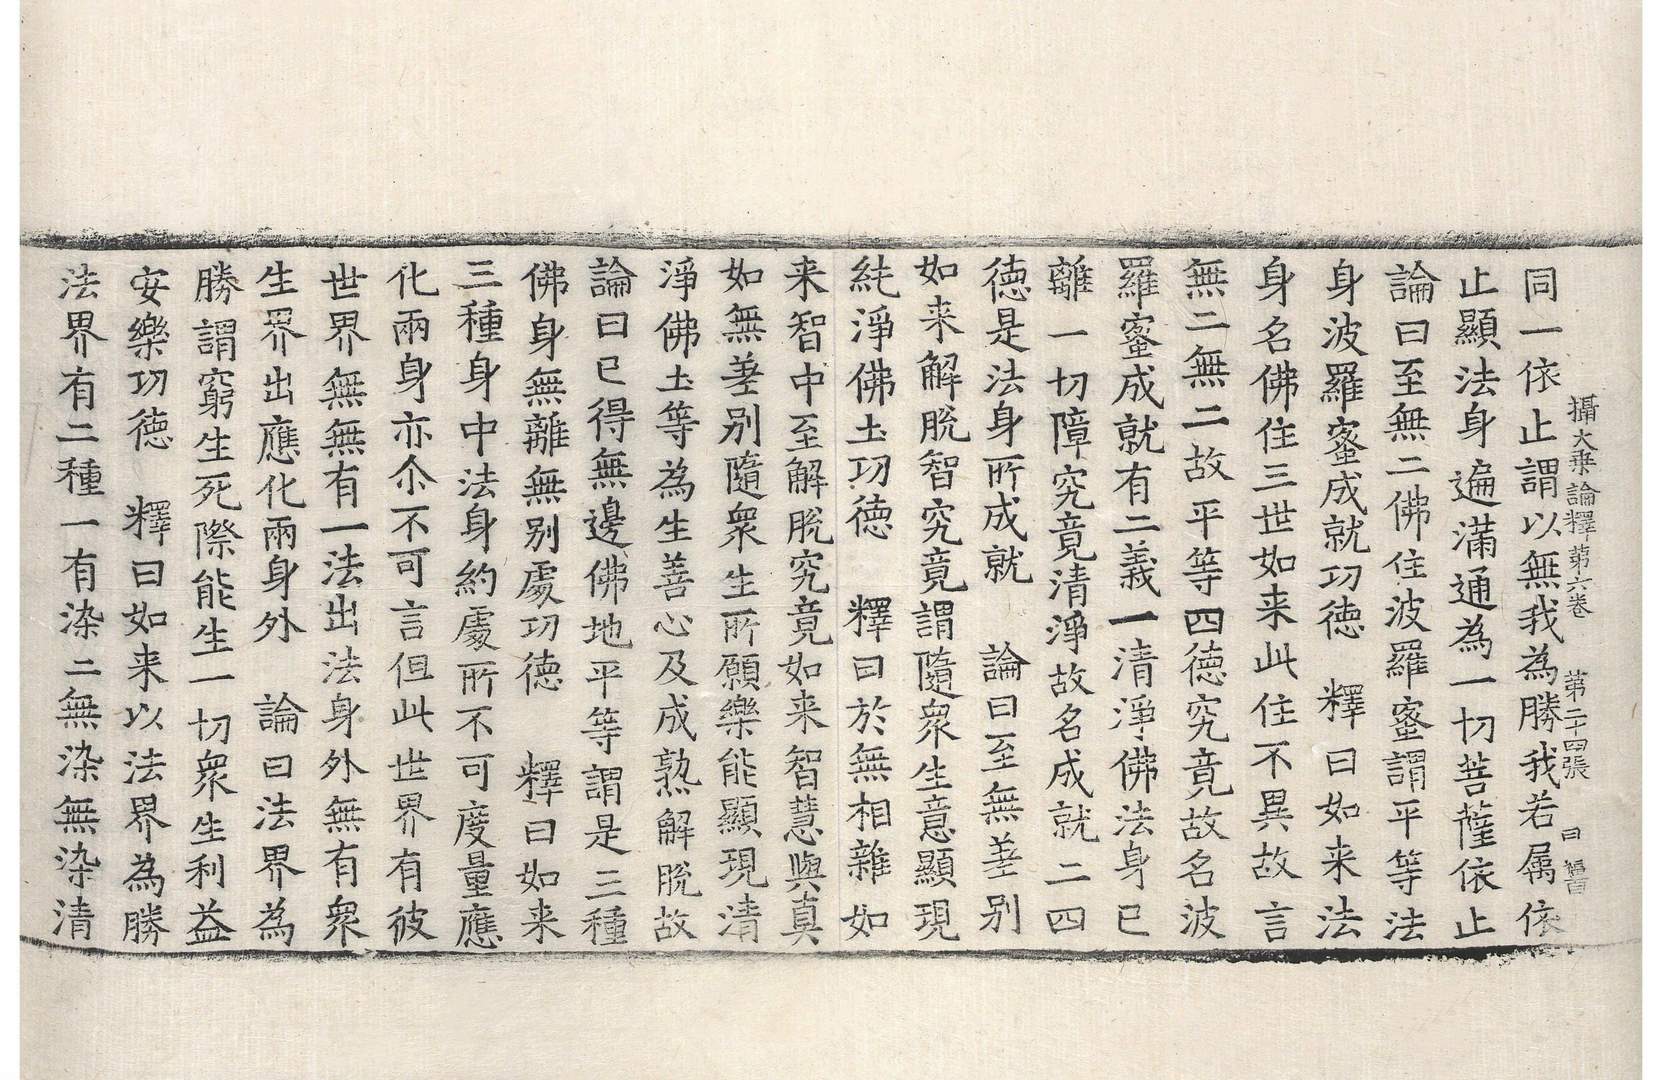 攝大乗論釋第六卷　第二十四張　曰
同一依止謂以無我為勝我若属依
止顯法身遍滿通為一切菩薩依止
論曰至無二佛住波羅蜜謂平等法
身波羅蜜成就功德　釋曰如来法
身名佛住三世如来此住不異故言
無二無二故平等四德究竟故名波
羅蜜成就有二義一清淨佛法身已
離一切障究竟清淨故名成就二四
德是法身所成就　論曰至無差别
如来解脱智究竟謂隨衆生意顯現
純淨佛土功德　釋曰於無相雜如
来智中至解脱究竟如来智慧與真
如無差别隨衆生所願樂能顯現清
淨佛土等為生善心及成熟解脱故
論曰已得無邊佛地平等謂是三種
佛身無離無别處功德　釋曰如来
三種身中法身約處所不可度量應
化兩身亦尒不可言但此世界有彼
世界無無有一法出法身外無有衆
生界出應化兩身外　論曰法界為
勝謂窮生死際能生一切衆生利益
安樂功德　釋曰如来以法界為勝
法界有二種一有染二無染無染清